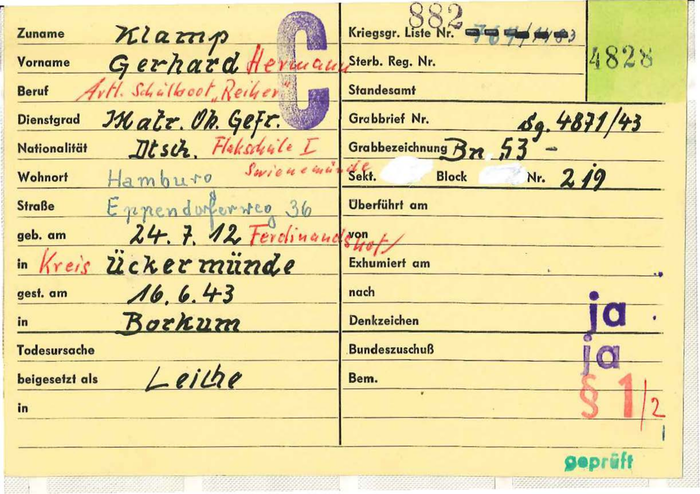 Zuname Klamp
Vorname Gerhard Hermann
Beruf Artl. Schulboot „Reiher"
Dienstgrad Matr. Ob. Gefr.
Nationalität Dtsch. Flakschule I
Swienemünde
Wohnort Hamburg
Straße Eppendorferweg 36
geb. am 24. 7. 12 Ferdinandshof/
in Kreis Ückermünde
gest. am 16. 6. 43
in Borkum
Todesursache
beigesetzt als Leiche
in
C
882
Kriegsgr. Liste Nr.
4828
Sterb. Reg. Nr.
Standesamt
Grabbrief Nr. Sg. 4871/43
Grabbezeichnung Bn 53 -
Sekt. Block Nr. 219
Überführt am
von
Exhumiert am
nach
Denkzeichen ja
Bundeszuschuß ja
Bem. § 1/2
geprüft